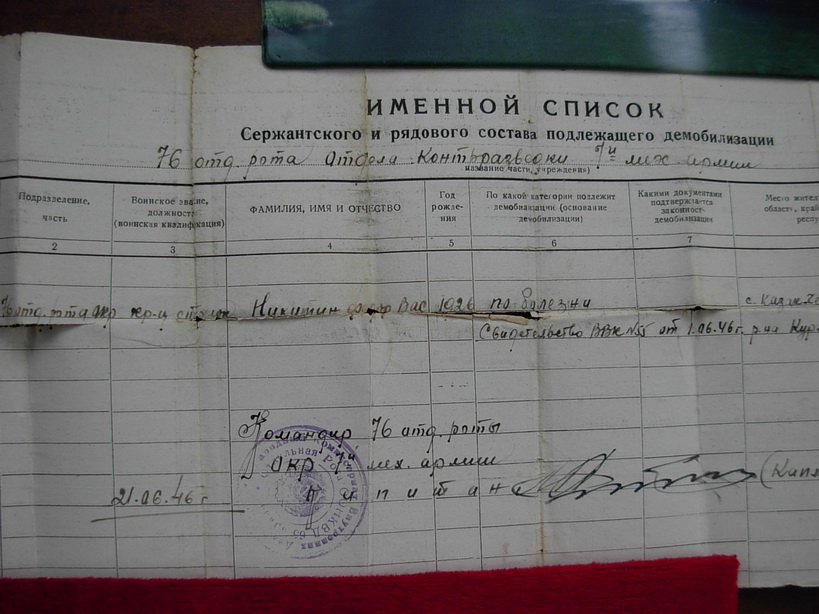 ИМЕННОЙ СПИСОК
Сержантского и рядового состава подлежащего демобилизации
76 отд. рота Отдела Контрразведки 7й мех. армии
название части, учреждения)
Подразделение, часть
Воинское звание, должность (воинская квалификация)
ФАМИЛИЯ, ИМЯ И ОТЧЕСТВО
Год рождения
По какой категории подлежит демобилизации (основание демобилизации)
Какими документами подтверждается законность демобилизации
Место житель
область, край
респу
2 3 4 5 6 7
76 отд. рота окр кр-ц стрелок Никитин Федор Вас 1926 по болезни
Свидетельство ВВК №5 от 1.06.46г.
Командир 76 отд. роты
окр 7й мех. армии
Капитан
21.06.46 г